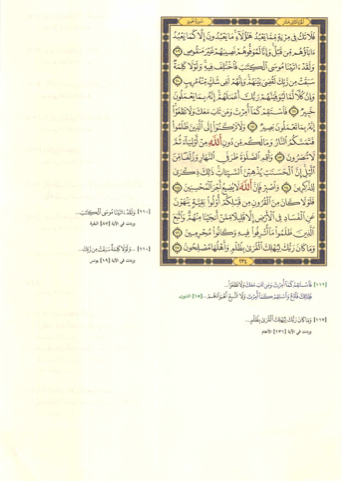 فَلَا تَكُ فِي مِرْيَةٍ مِّمَّا يَعْبُدُ هَٰؤُلَاءِ مَا يَعْبُدُونَ إِلَّا كَمَا يَعْبُدُ
ءَابَاؤُهُم مِّن قَبْلُ وَإِنَّا لَمُوَفُّوهُمْ نَصِيبَهُمْ غَيْرَ مَنقُوصٍ ١٠٩
وَلَقَدْ ءَاتَيْنَا مُوسَى ٱلْكِتَٰبَ فَٱخْتُلِفَ فِيهِ وَلَوْلَا كَلِمَةٌ
سَبَقَتْ مِن رَّبِّكَ لَقُضِيَ بَيْنَهُمْ وَإِنَّهُمْ لَفِي شَكٍّ مِّنْهُ مُرِيبٍ ١١٠
وَإِنَّ كُلًّا لَّمَّا لَيُوَفِّيَنَّهُمْ رَبُّكَ أَعْمَٰلَهُمْ إِنَّهُۥ بِمَا يَعْمَلُونَ
خَبِيرٌ ١١١ فَٱسْتَقِمْ كَمَا أُمِرْتَ وَمَن تَابَ مَعَكَ وَلَا تَطْغَوْا
إِنَّهُۥ بِمَا تَعْمَلُونَ بَصِيرٌ ١١٢ وَلَا تَرْكَنُوا إِلَى ٱلَّذِينَ ظَلَمُوا
فَتَمَسَّكُمُ ٱلنَّارُ وَمَا لَكُم مِّن دُونِ ٱللَّهِ مِنْ أَوْلِيَاءَ ثُمَّ
لَا تُنصَرُونَ ١١٣ وَأَقِمِ ٱلصَّلَوٰةَ طَرَفَيِ ٱلنَّهَارِ وَزُلَفًا مِّنَ
ٱلَّيْلِ إِنَّ ٱلْحَسَنَٰتِ يُذْهِبْنَ ٱلسَّيِّـَٔاتِ ذَٰلِكَ ذِكْرَىٰ
لِلذَّٰكِرِينَ ١١٤ وَٱصْبِرْ فَإِنَّ ٱللَّهَ لَا يُضِيعُ أَجْرَ ٱلْمُحْسِنِينَ ١١٥
فَلَوْلَا كَانَ مِنَ ٱلْقُرُونِ مِن قَبْلِكُمْ أُولُوا بَقِيَّةٍ يَنْهَوْنَ
عَنِ ٱلْفَسَادِ فِي ٱلْأَرْضِ إِلَّا قَلِيلًا مِّمَّنْ أَنجَيْنَا مِنْهُمْ وَٱتَّبَعَ
ٱلَّذِينَ ظَلَمُوا مَا أُتْرِفُوا فِيهِ وَكَانُوا مُجْرِمِينَ ١١٦
وَمَا كَانَ رَبُّكَ لِيُهْلِكَ ٱلْقُرَىٰ بِظُلْمٍ وَأَهْلُهَا مُصْلِحُونَ ١١٧
٢٣٤
[١١٠] وَلَقَدْ ءَاتَيْنَا مُوسَى ٱلْكِتَٰبَ...
وردت في الآية [٨٧] البقرة
[١١٠] ... وَلَوْلَا كَلِمَةٌ سَبَقَتْ مِن رَّبِّكَ...
وردت في الآية [١٩] يونس
[١١٢] فَٱسْتَقِمْ كَمَا أُمِرْتَ وَمَن تَابَ مَعَكَ وَلَا تَطْغَوْا...
فَلِذَٰلِكَ فَٱدْعُ وَٱسْتَقِمْ كَمَا أُمِرْتَ وَلَا تَتَّبِعْ أَهْوَاءَهُمْ... [١٥] الشورى
[١١٧] وَمَا كَانَ رَبُّكَ لِيُهْلِكَ ٱلْقُرَىٰ بِظُلْمٍ...
وردت في الآية [١٣١] الأنعام